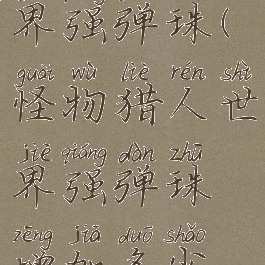 界强弹珠(
guài wù liè rén shì
怪物猎人世
jiè qiáng dàn zhū
界强弹珠
zēng jiā duō shǎo
增加多少